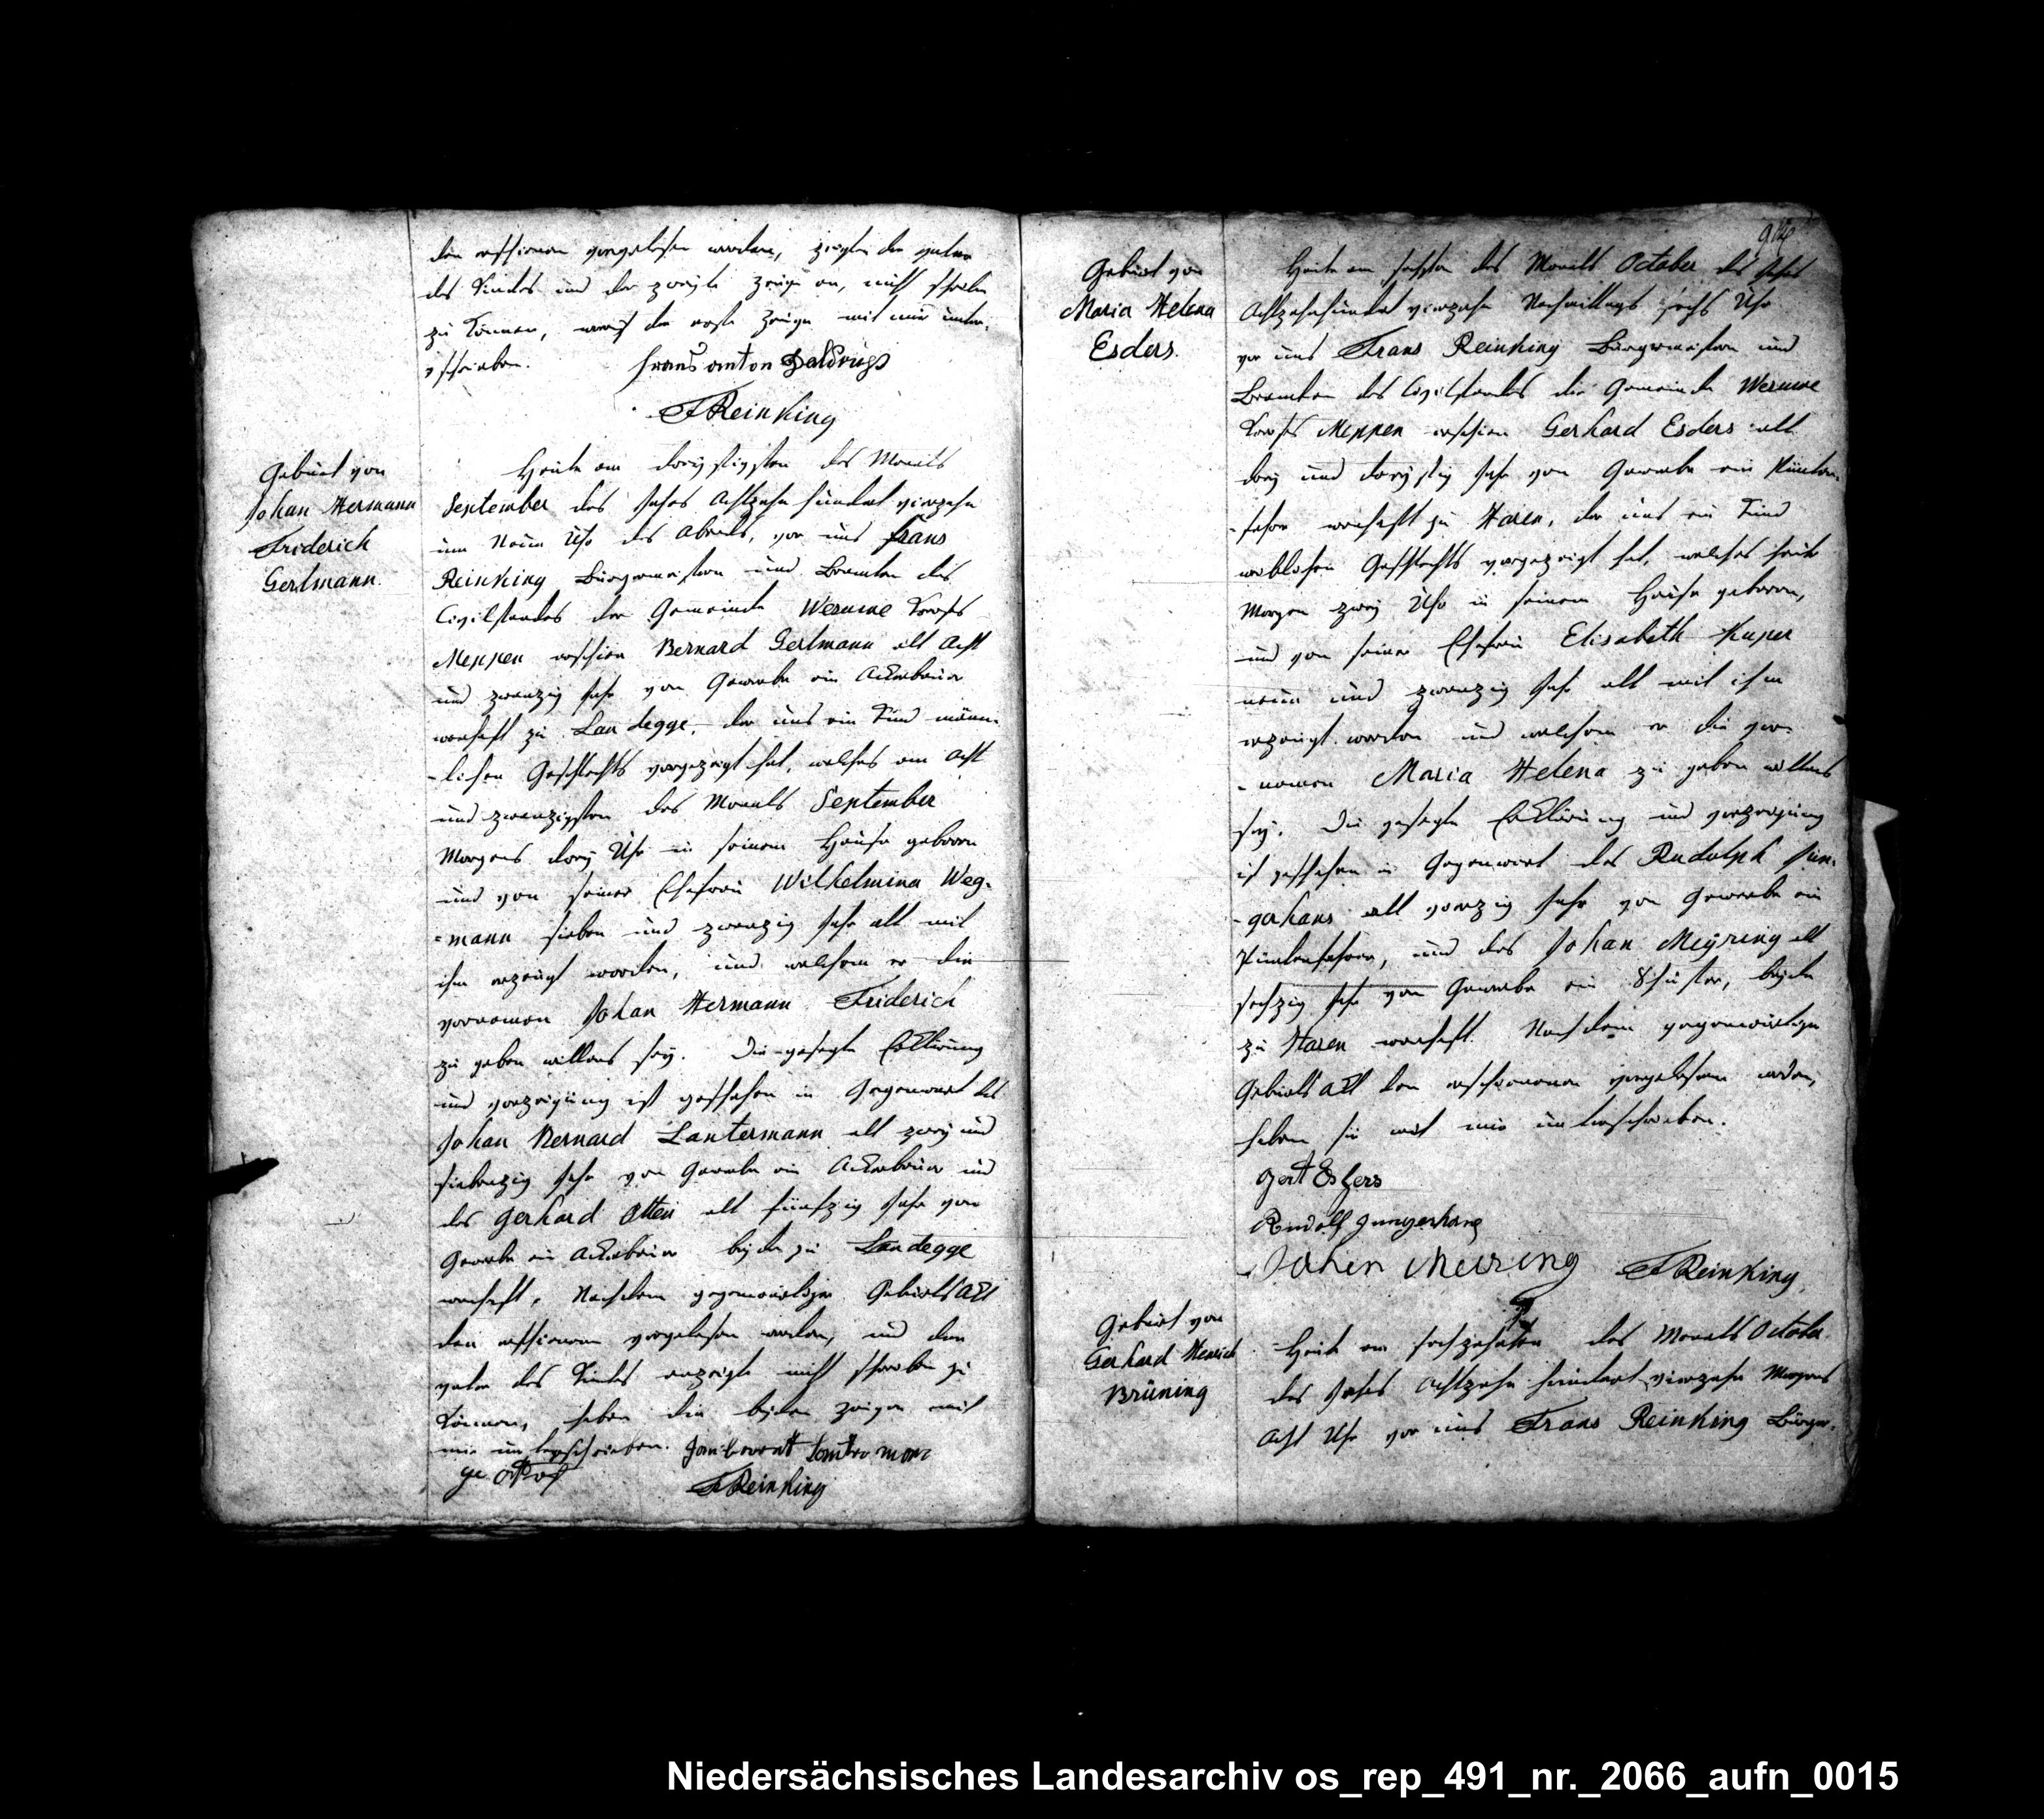 den erschienen vorgelesen worden, zeigten der Vater
des Kindes und der zweyte Zeuge an, nicht schreiben
zu können, worauf der erste Zeuge mit mir unter-
schrieben. frans anton
F Reinking
Geburt von
Johan Hermann
Friderich
Gerlmann.
Heute am dreyßigsten des Monats
September des Jahrs Achtzehn hundert vierzehn
um Neun Uhr des Abends, vor uns Frans
Reinking Bürgermeistern und Beamten des
Civilstandes der Gemeinde Werume Kreises
Meppen erschien Bernard Gerlmann alt Acht
und zwanzig Jahr von Gewerbe ein Ackerbauer
wonhaft zu Landegge, der uns ein Kind männ-
-lichen Geschlechts vorgezeigt hat, welches am Acht
und zwanzigsten des Monats September
Morgens drey Uhr in seinem Hause geboren
und von seiner Ehefrau Wilhelmina Weg-
=mann sieben und zwanzig Jahr alt mit
ihm erzeugt worden, und welchem er die
vornamen Johan Hermann Friderich
zu geben willens sey. Die gesagte Erklärung
und vorzeigung ist geschehen in Gegenwart des
Johan Bernard Lantermann alt zwey und
siebenzig Jahr von Gewerbe ein Ackerbauer und
des Gerhard Otten alt fünfzig Jahr von
Gewerbe ein Ackerbauer beyde zu Landegge
wonhaft, Nachdem gegenwärtiger Geburtsakt
den erschienen vorgelesen worden, und der
vater des Kindes anzeigte nicht schreiben zu
können, haben die beyden Zeugen mit
mir unterschrieben.
F Reinking
Geburt von
Maria Helena
Esders.
Heute am sechsten des Monats October des Jahrs
Achtzehnhundert vierzehn Nachmittags sechs Uhr
vor uns Frans Reinking Bürgermeistern und
Beamten des Civilstandes die Gemeinde Werume
Kreises Meppen erschien Gerhard Esders alt
drey und dreyßig Jahr von Gewerbe ein Pünten-
-fahrer wonhaft zu Haren, der uns ein Kind
weiblichen Geschlechts vorgezeigt hat, welches heute
Morgen zwey Uhr in seinem Hause geboren,
und von seiner Ehefrau Elisabeth Kuper
neun und zwanzig Jahr alt mit ihm
erzeugt worden und welchem er die vor-
-namen Maria Helena zu geben willens
sey. Die gesagte Erklärung und vorzeigung
ist geschehen in Gegenwart des Rudolph Jün-
-gerhans alt vierzig Jahr von Gewerbe ein
Püntenfahrer, und des Johan Meÿring alt
sechzig Jahr von Gewerbe ein Schuster, beyde
zu Haren wonhaft. Nachdem gegenwärtiger
Geburtsakt den erschienenen vorgelesen worden,
haben sie mit mir unterschrieben.
Gert Esders
Rudolf Jungerhans
Johan Meiring F Reinking
Geburt von
Gerhard Henrich
Brüning
Heute am sechszehnten des Monats October
des Jahrs Achtzehn hundert vierzehn Morgens
Acht Uhr vor uns Frans Reinking Bürger-
Niedersächsisches Landesarchiv os_rep_491_nr._2066_aufn_0015